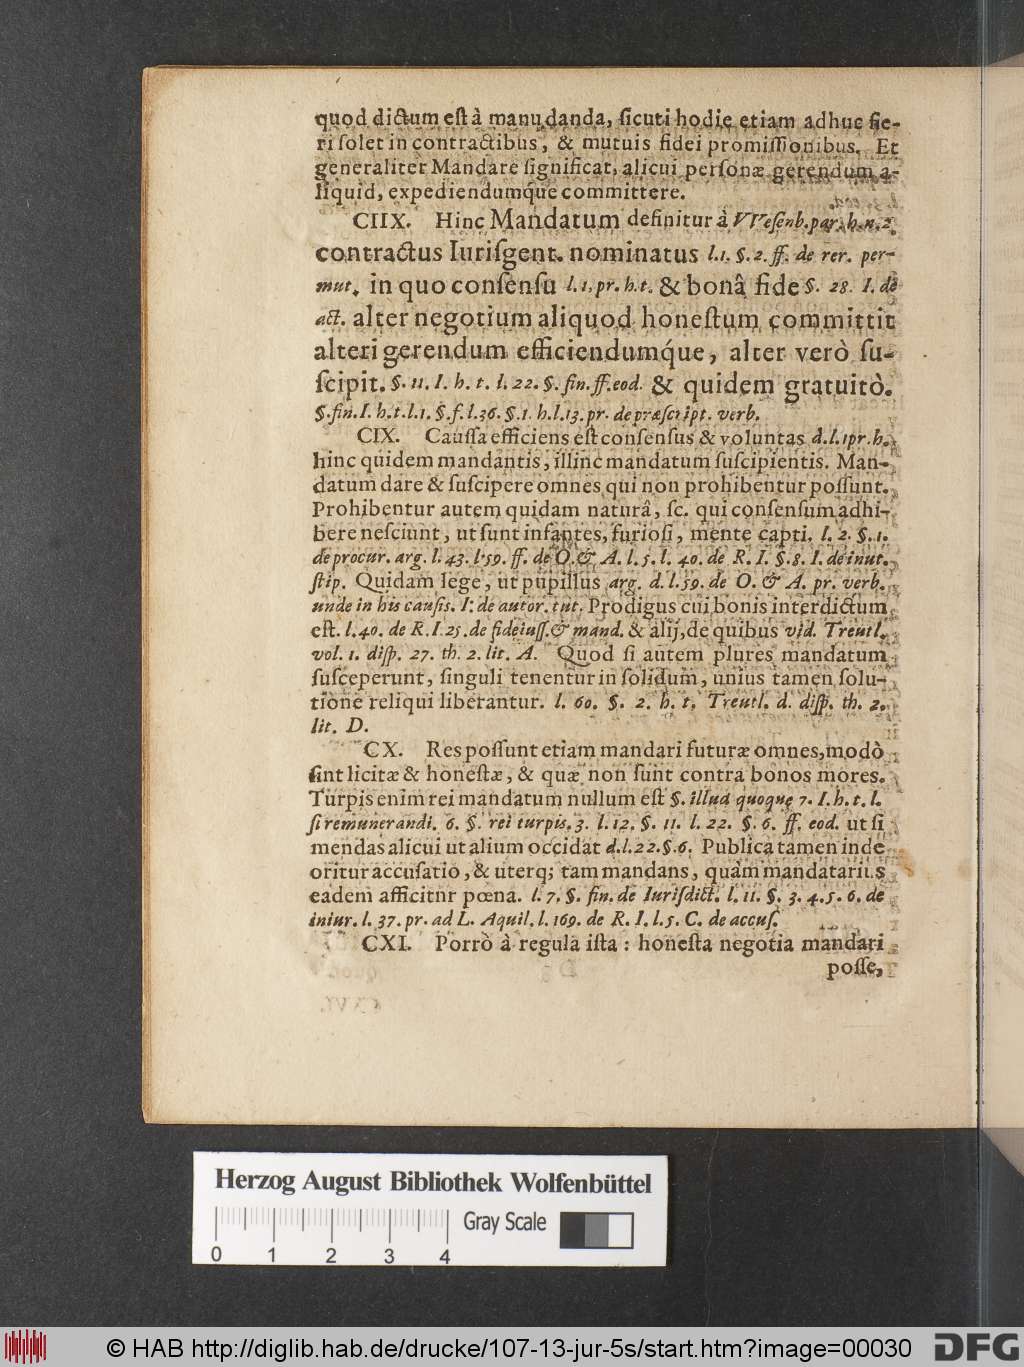 quod dictum est à manu danda, ſicuti hodie etiam adhuc fie-
ri ſolet in contractibus, & mutuis fidei promiſſionibus. Et
generaliter Mandare ſignificat, alicui perſonæ gerendum a-
liquid, expediendumq́ue committere.
CIIX. Hinc Mandatum definitur à VVeſenb. par. h. n. 2.
contractus Iuriſgent. nominatus l. 1. §. 2. ff. de rer. per-
mut. in quo conſenſu l. 1. pr. h. t. & bonâ fide §. 28. I. de
act. alter negotium aliquod honeſtum committit
alteri gerendum efficiendumq́ue, alter verò ſu-
ſcipit. §. 11. I. h. t. l. 22. §. fin. ff. eod. & quidem gratuitò.
§. fin. I. h. t. l. 1. §. f. l. 36. §. 1. h. l. 13. pr. de præſcript. verb.
CIX. Cauſſa efficiens eſt conſenſus & voluntas d. l. 1 pr. h.
hinc quidem mandantis, illinc mandatum ſuſcipientis. Man-
datum dare & ſuſcipere omnes qui non prohibentur poſſunt.
Prohibentur autem quidam naturâ, ſc. qui conſenſum adhi-
bere neſciunt, ut ſunt infantes, furioſi, mente capti. l. 2. §. 1.
de procur. arg. l. 43. l. 59. ff. de O. & A. l. 5. l. 40. de R. I. §. 8. I. de inut.
ſtip. Quidam lege, ut pupillus arg. d. l. 59. de O. & A. pr. verb.
unde in his cauſis. I. de autor. tut. Prodigus cui bonis interdictum
eſt. l. 40. de R. I. 25. de fideiuſſ. & mand. & alij, de quibus vid. Treutl.
vol. 1. diſp. 27. th. 2. lit. A. Quod ſi autem plures mandatum
ſuſceperunt, ſinguli tenentur in ſolidum, unius tamen ſolu-
tione reliqui liberantur. l. 60. §. 2. h. t. Treutl. d. diſp. th. 2.
lit. D.
CX. Res poſſunt etiam mandari futuræ omnes, modò
ſint licitæ & honeſtæ, & quæ non ſunt contra bonos mores.
Turpis enim rei mandatum nullum eſt §. illud quoque 7. I. h. t. l.
ſi remunerandi. 6. §. rei turpis. 3. l. 12. §. 11. l. 22. §. 6. ff. eod. ut ſi
mendas alicui ut alium occidat d. l. 22. §. 6. Publica tamen inde
oritur accuſatio, & uterq; tam mandans, quàm mandatarius
eadem afficitnr pœna. l. 7. §. fin. de Iuriſdict. l. 11. §. 3. 4. 5. 6. de
iniur. l. 37. pr. ad L. Aquil. l. 169. de R. I. l. 5. C. de accuſ.
CXI. Porrò à regula iſta: honeſta negotia mandari
poſſe,
Herzog August Bibliothek Wolfenbüttel
Gray Scale
0 1 2 3 4
© HAB http://diglib.hab.de/drucke/107-13-jur-5s/start.htm?image=00030
DFG